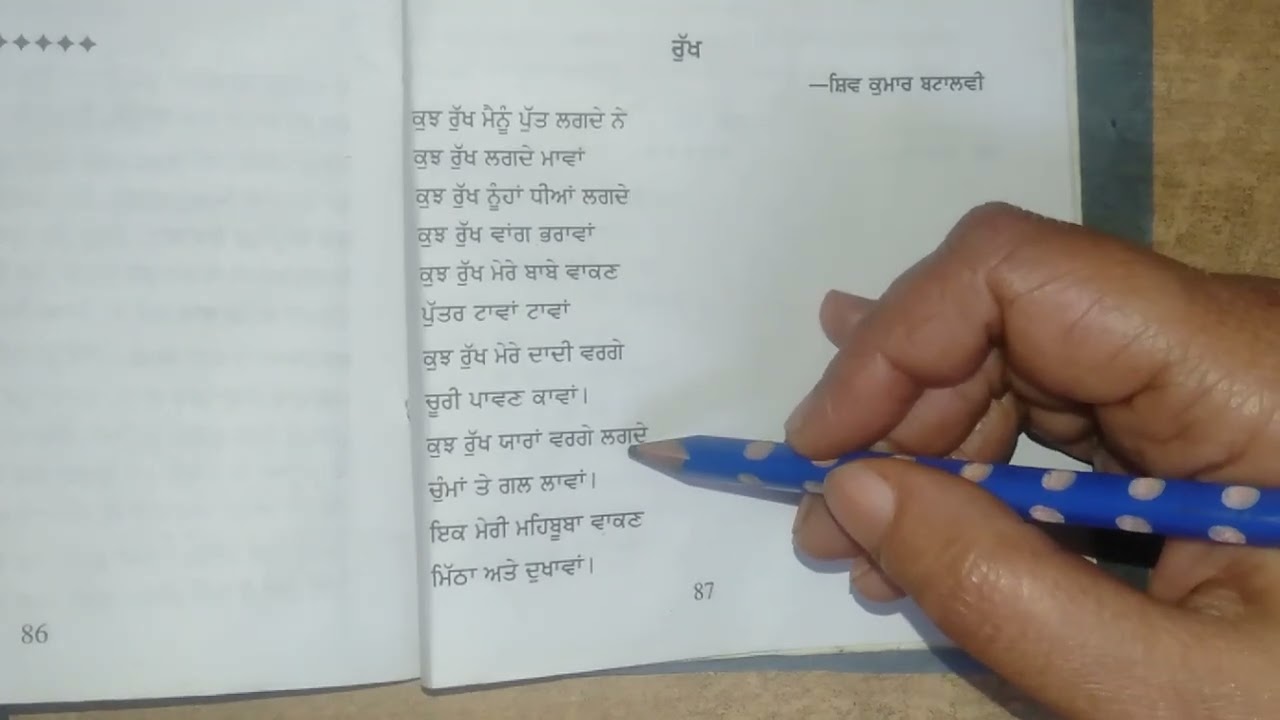 ਰੁੱਖ
—ਸ਼ਿਵ ਕੁਮਾਰ ਬਟਾਲਵੀ
ਕੁਝ ਰੁੱਖ ਮੈਨੂੰ ਪੁੱਤ ਲਗਦੇ ਨੇ
ਕੁਝ ਰੁੱਖ ਲਗਦੇ ਮਾਵਾਂ
ਕੁਝ ਰੁੱਖ ਨੂੰਹਾਂ ਧੀਆਂ ਲਗਦੇ
ਕੁਝ ਰੁੱਖ ਵਾਂਗ ਭਰਾਵਾਂ
ਕੁਝ ਰੁੱਖ ਮੇਰੇ ਬਾਬੇ ਵਾਕਣ
ਪੁੱਤਰ ਟਾਵਾਂ ਟਾਵਾਂ
ਕੁਝ ਰੁੱਖ ਮੇਰੇ ਦਾਦੀ ਵਰਗੇ
ਚੂਰੀ ਪਾਵਣ ਕਾਵਾਂ।
ਕੁਝ ਰੁੱਖ ਯਾਰਾਂ ਵਰਗੇ ਲਗਦੇ
ਚੁੰਮਾਂ ਤੇ ਗਲ ਲਾਵਾਂ।
ਇਕ ਮੇਰੀ ਮਹਿਬੂਬਾ ਵਾਕਣ
ਮਿੱਠਾ ਅਤੇ ਦੁਖਾਵਾਂ।
87
86